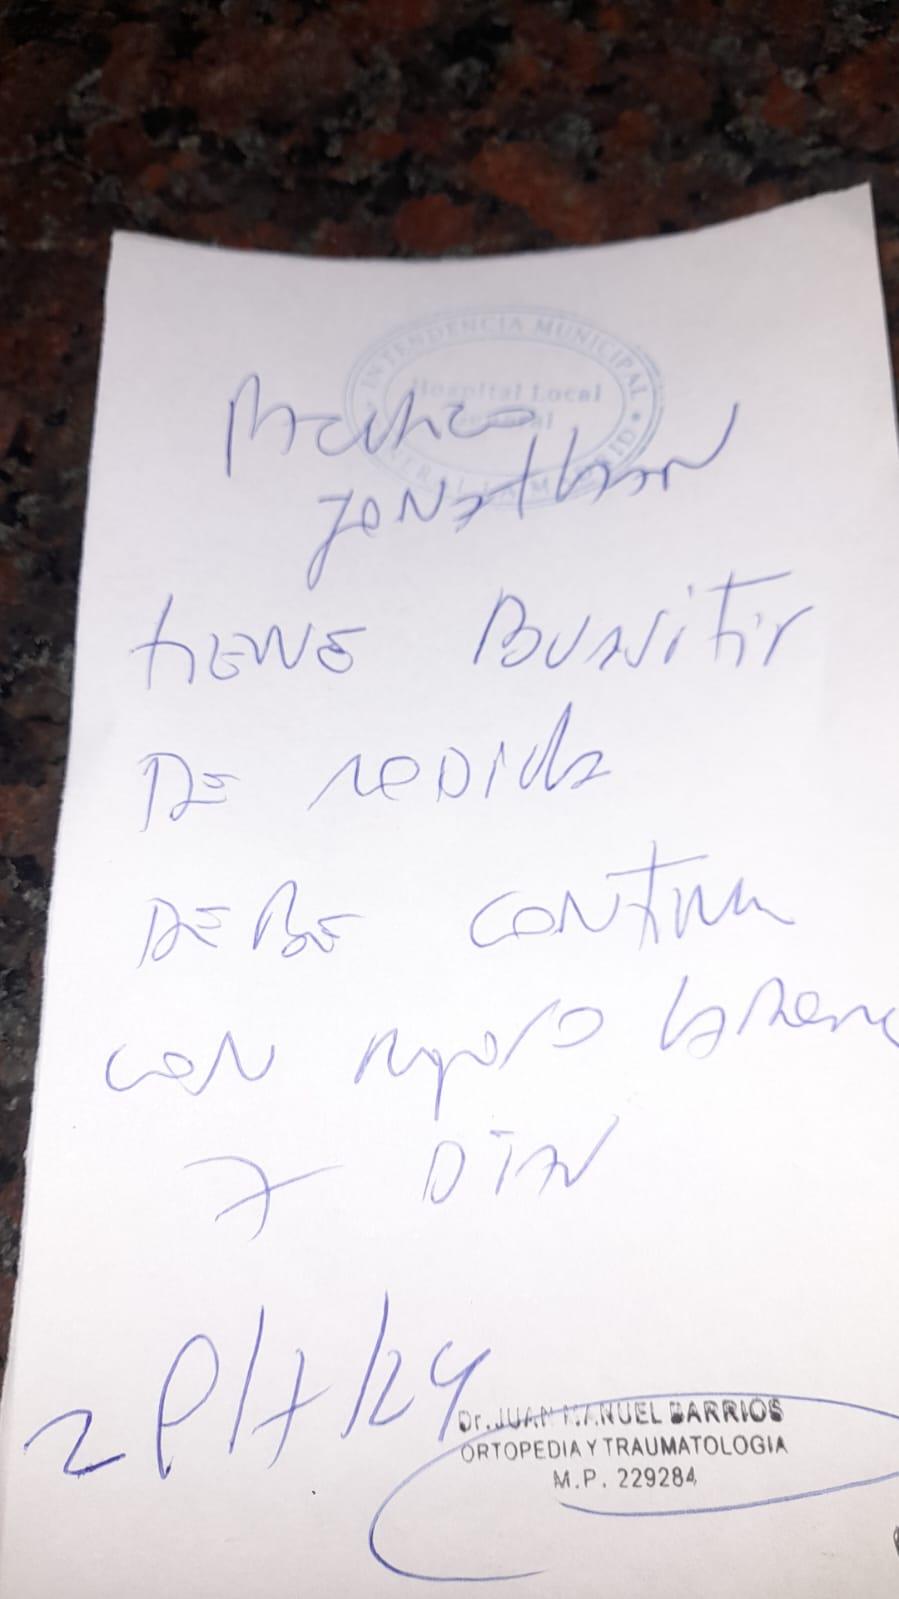 INTENDENCIA MUNICIPAL
Hospital Local
Jonathan
tiene Bursitis
de rodilla
DEBE continuar
con reposo laboral
7 DIAS
29/7/24
Dr. JUAN MANUEL BARRIOS
ORTOPEDIA Y TRAUMATOLOGIA
M.P. 229284